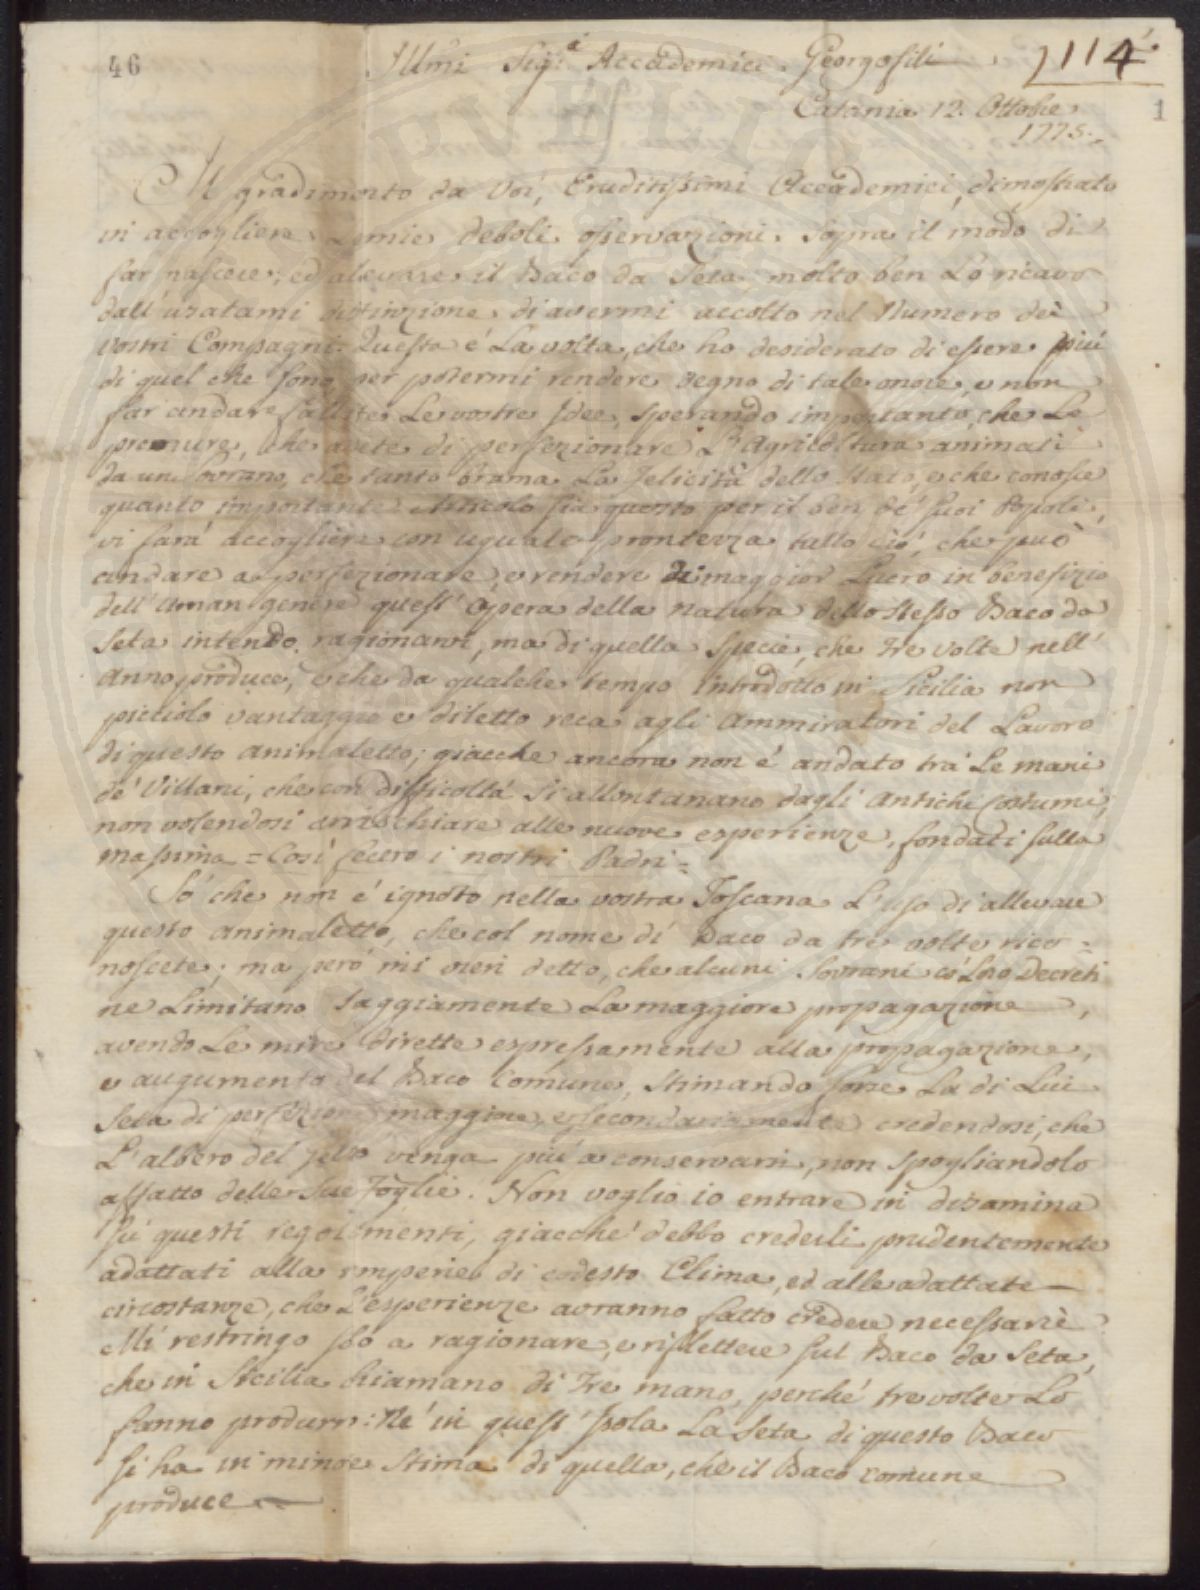 46
Illmi Sigri Accademici Georgofili
114
Catania 12. Ottobre
1775.
1
Il gradimento da Voi, Eruditissimi Accademici, dimostrato
in accogliere le mie deboli osservazioni sopra il modo di
far nascere, ed alevare il Baco da Seta, molto ben Lo ricavo
dall'usatami distinzione di avermi accolto nel Numero dei
vostri Compagni. Questa é La volta, che ho desiderato di essere piú
di quel che sono, per potermi rendere degno di tale onore, e non
far andare fallite Le vostre Idee, sperando importanto, che Le
premure, che avete di perfezionare L'Agricoltura animati
da un Sovrano, che tanto brama La Felicitá dello Stato, e che conosce
quanto importante Articolo sia questo per il ben de' suoi Popoli,
vi fará accogliere con uguale prontezza tutto ció, che può
andare a perfezionare, e rendere di maggior Lucro in benefizio
dell'Uman genere quest'Opera della natura dello stesso Baco da
Seta intendo ragionarvi, ma di quella Specie, che Tre volte nell'
Anno produce, e che da qualche tempo introdotto in Sicilia non
picciolo vantaggio e diletto reca agli Ammiratori del Lavoro
di questo animaletto; giacche ancora non é andato trá Le mani
de' Villani, che con difficoltá si allontanano dagli Antichi Costumi,
non volendosi arrischiare alle nuove esperienze, fondati sulla
massima = Cosí fecero i nostri Padri =
Só che non é ignoto nella vostra Toscana L'uso di allevare
questo animaletto, che col nome di Baco da tre volte rico=
noscete; ma peró mi vien detto, che alcuni Sovrani có Loro Decreti
ne Limitano saggiamente La maggiore propagazione,
avendo Le mire dirette espressamente alla propagazione,
e augumento del Baco Comune, stimando forse La di Lui
Seta di perfezione maggiore, e secondariamente credendosi, che
L'albero del gelso venga piú a conservarsi, non spogliandolo
affatto delle Sue Foglie. Non voglio io entrare in disamina
sú questi regolamenti, giacché debbo crederli prudentemente
adattati alla temperie di codesto Clima, ed alle adattate
circostanze, che L'esperienze avranno fatto credere necessarie
Mi restringo só a ragionare, e riflettere sul Baco da Seta,
che in Sicilia chiamano di Tre mano, perché tre volte Ló
fanno produrre: Né in quest'Isola La Seta di questo Baco
si ha in minore stima di quella, che il Baco comune
produce